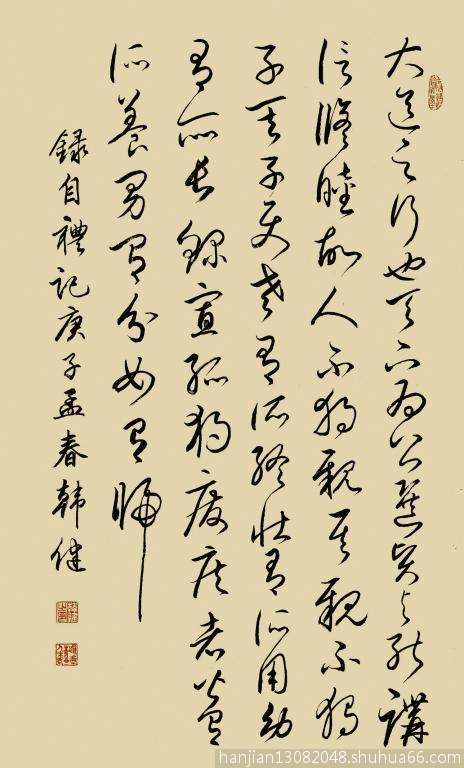 大道之行也天下為公選賢與能講
信脩睦故人不独親其親不独
子其子使老有所終壯有所用幼
有所長鰥寡孤独廢疾者皆有
所養男有分女有歸
錄自禮記庚子孟春韓健
hanjian13082048.shuhua66.com